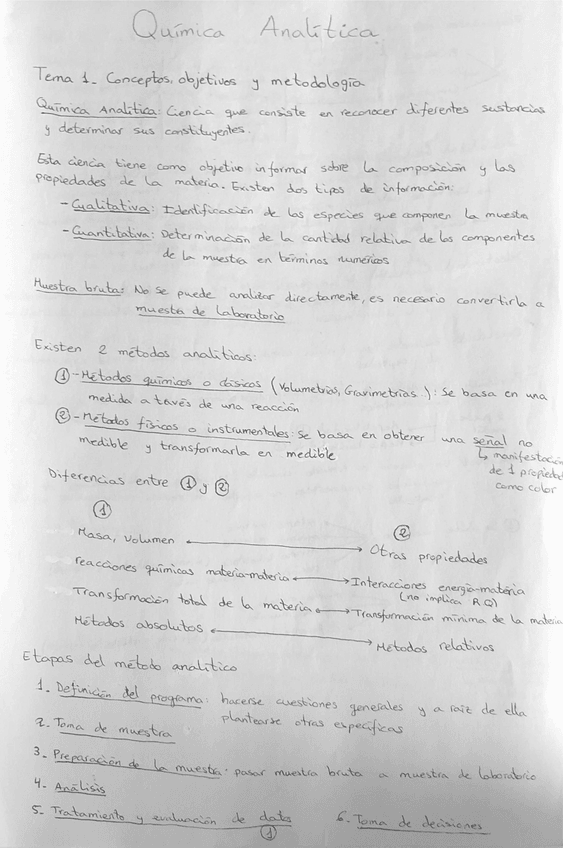 Química Analítica
Tema 1. Conceptos, objetivos y metodología
Química Analítica: Ciencia que consiste en reconocer diferentes sustancias
y determinar sus constituyentes.
Esta ciencia tiene como objetivo informar sobre la composición y las
propiedades de la materia. Existen dos tipos de información:
- Cualitativa: Identificación de las especies que componen la muestra
- Cuantitativa: Determinación de la cantidad relativa de los componentes
de la muestra en términos numéricos
Muestra bruta: No se puede analizar directamente, es necesario convertirla a
muestra de laboratorio
Existen 2 métodos analíticos:
① - Métodos químicos o clásicos (Volumetrías, Gravimetrías): Se basa en una
medida a través de una reacción
② - Métodos físicos o instrumentales: Se basa en obtener una señal no
medible y transformarla en medible
↳ manifestación
de 1 propiedad
como color
Diferencias entre ① y ②
① ②
Masa, volumen ↔ Otras propiedades
reacciones químicas materia-materia ↔ Interacciones energía-materia
(no implica RQ)
Transformación total de la materia ↔ Transformación mínima de la materia
Métodos absolutos ↔ Métodos relativos
Etapas del método analítico
1. Definición del programa: hacerse cuestiones generales y a raíz de ella
plantearse otras específicas
2. Toma de muestra
3. Preparación de la muestra: pasar muestra bruta a muestra de laboratorio
4. Análisis
5. Tratamiento y evaluación de datos 6. Toma de decisiones
①